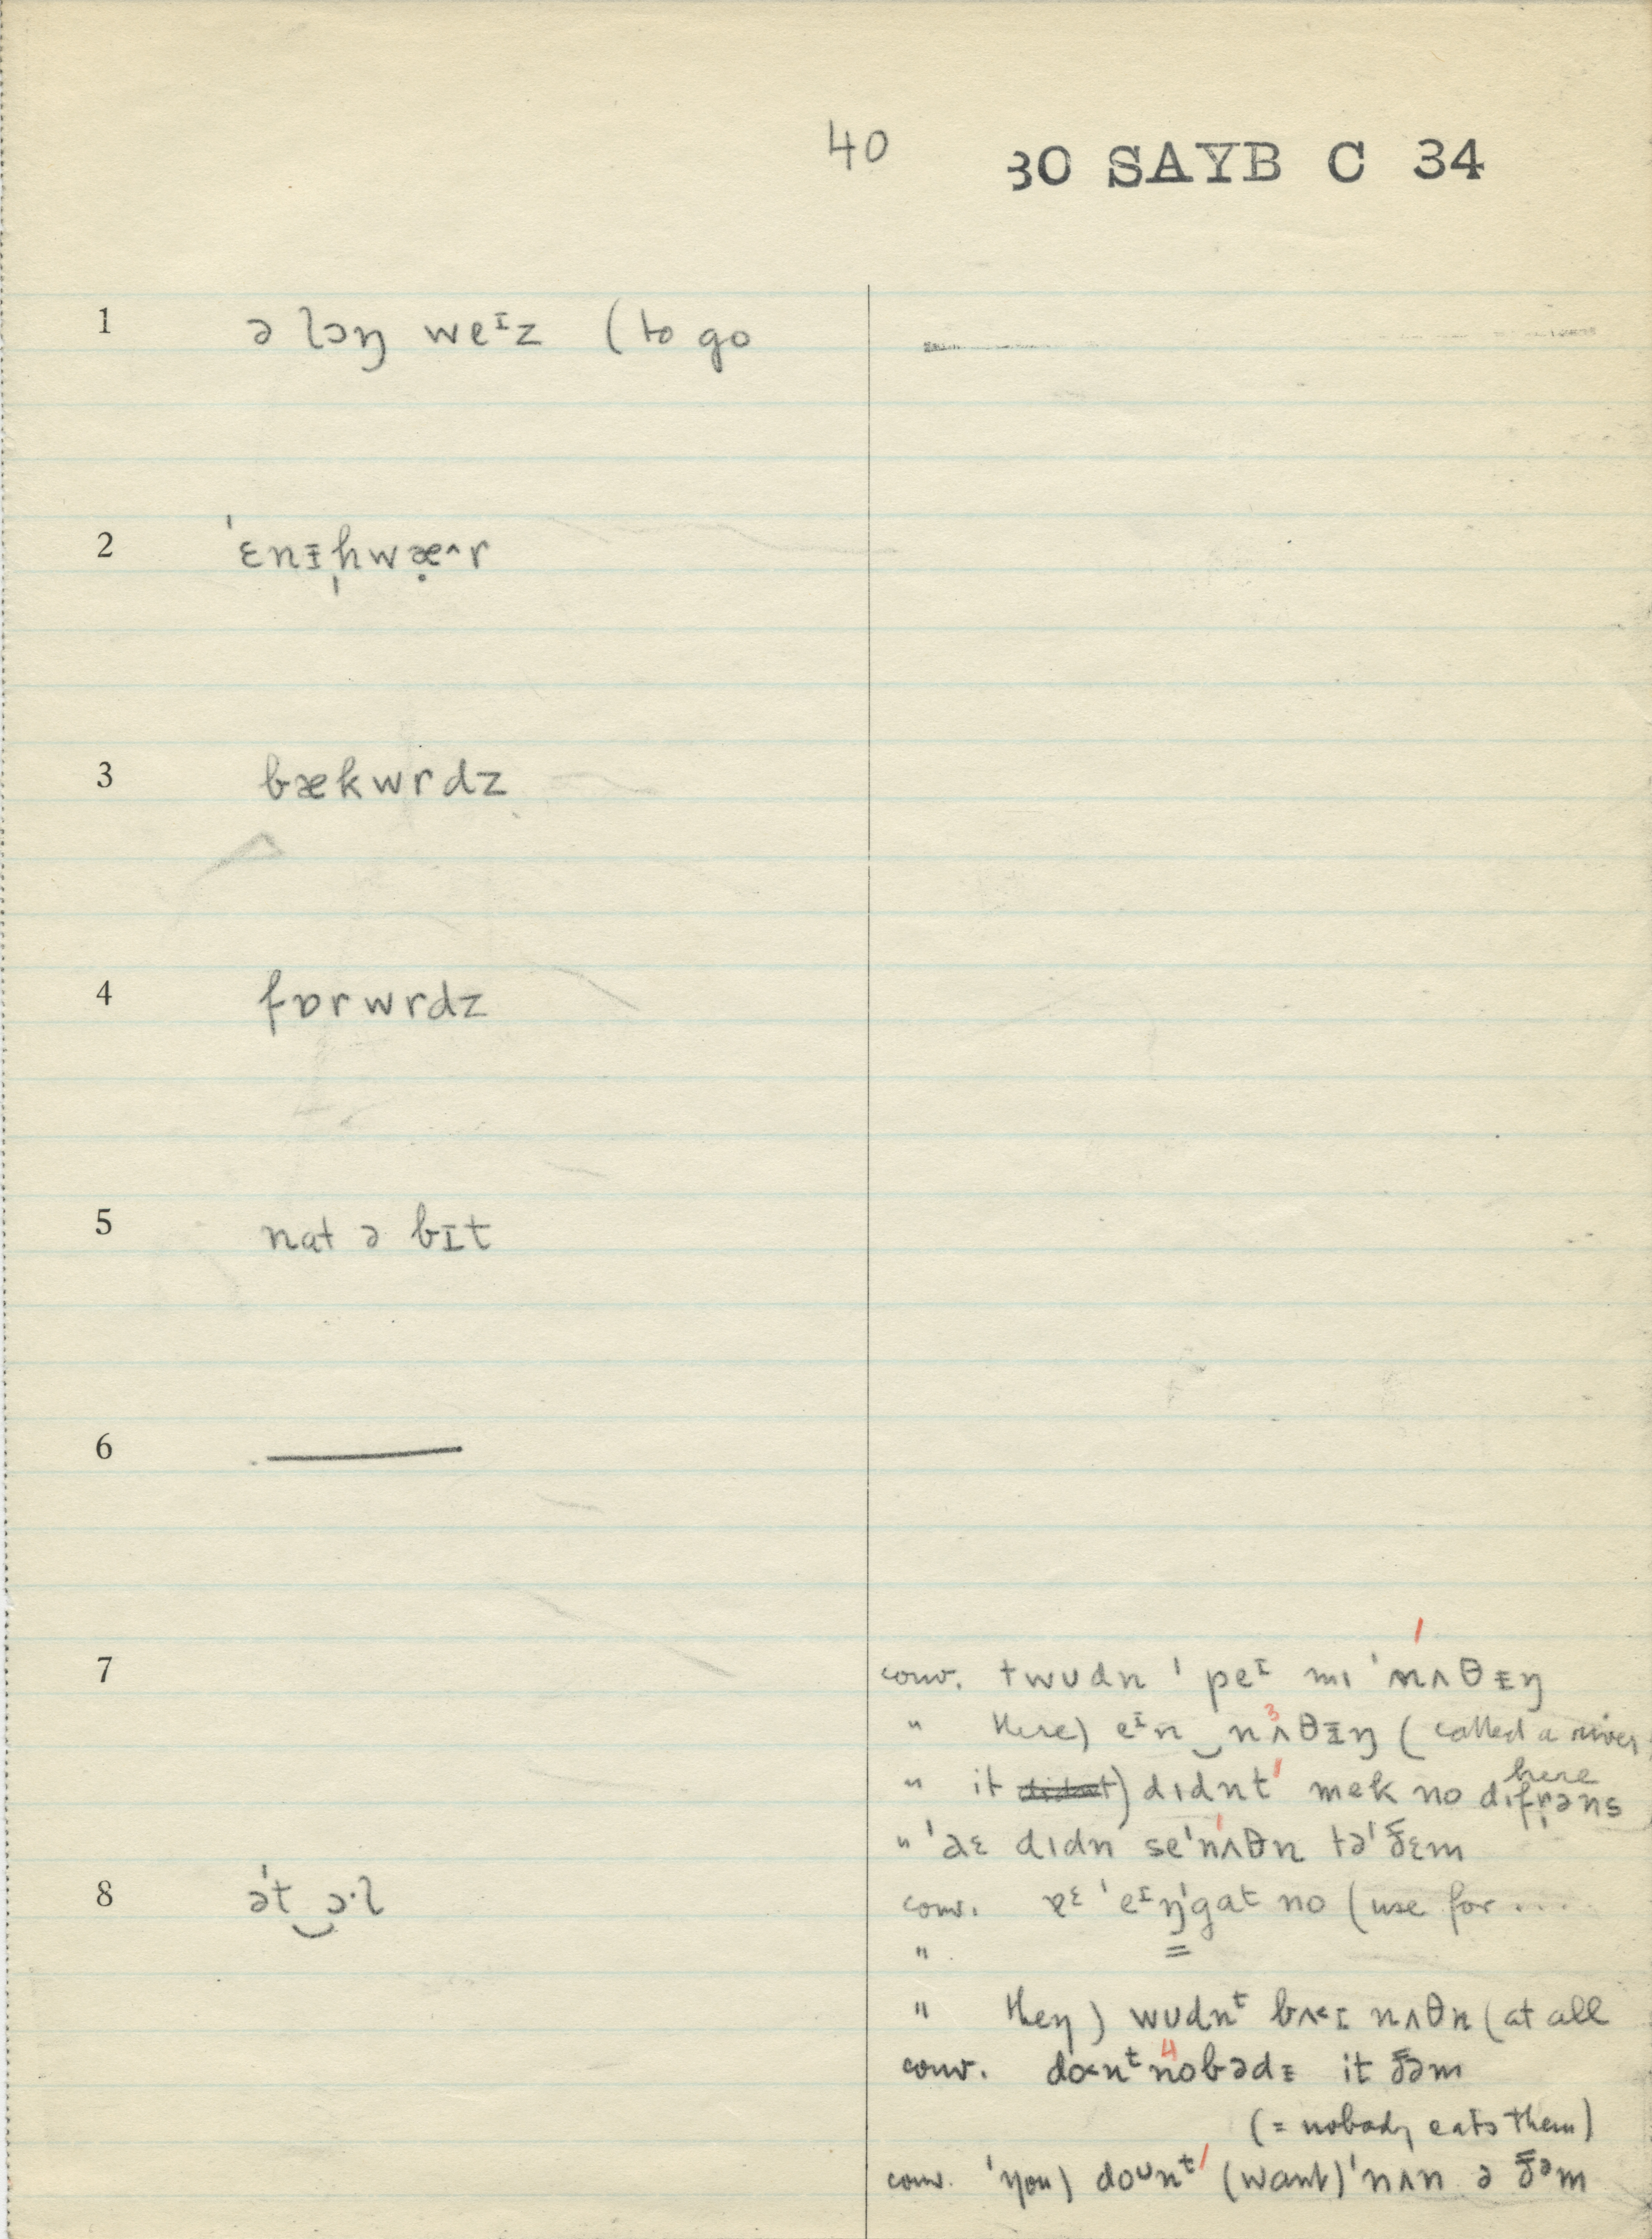 40 30 SAYB C 34
1 ə lɔŋ weᴵz (to go
2 ˈɛnɪ̵ˌhwæ̣^r
3 bækwrdz
4 fɒrwrdz
5 nat ə bɪt
6 ———
7 conv. twʊdn ˈpeᴵ mɪ ˈnʌθɪ̵ŋ
" there) eᴵn‿nʌθɪ̵ŋ (called a river
here
" it didnt) dɪdnt mek no dɪfr̩əns
" ˈ dɪdn seˈnʌθn təˈðɛm
8 əˈt‿ɔ·l
conv. ɐᵋ ˈeᴵŋˈgat no (use for ...
"
" they) wʊdnᵗ bʌ˂ɪ nʌθn (at all
conv. donᵗ nobədɪ̵ it ðəm
(= nobody eats them)
conv. ˈyou) doᶷnᵗ (want) ˈnʌn ə ðᵊm